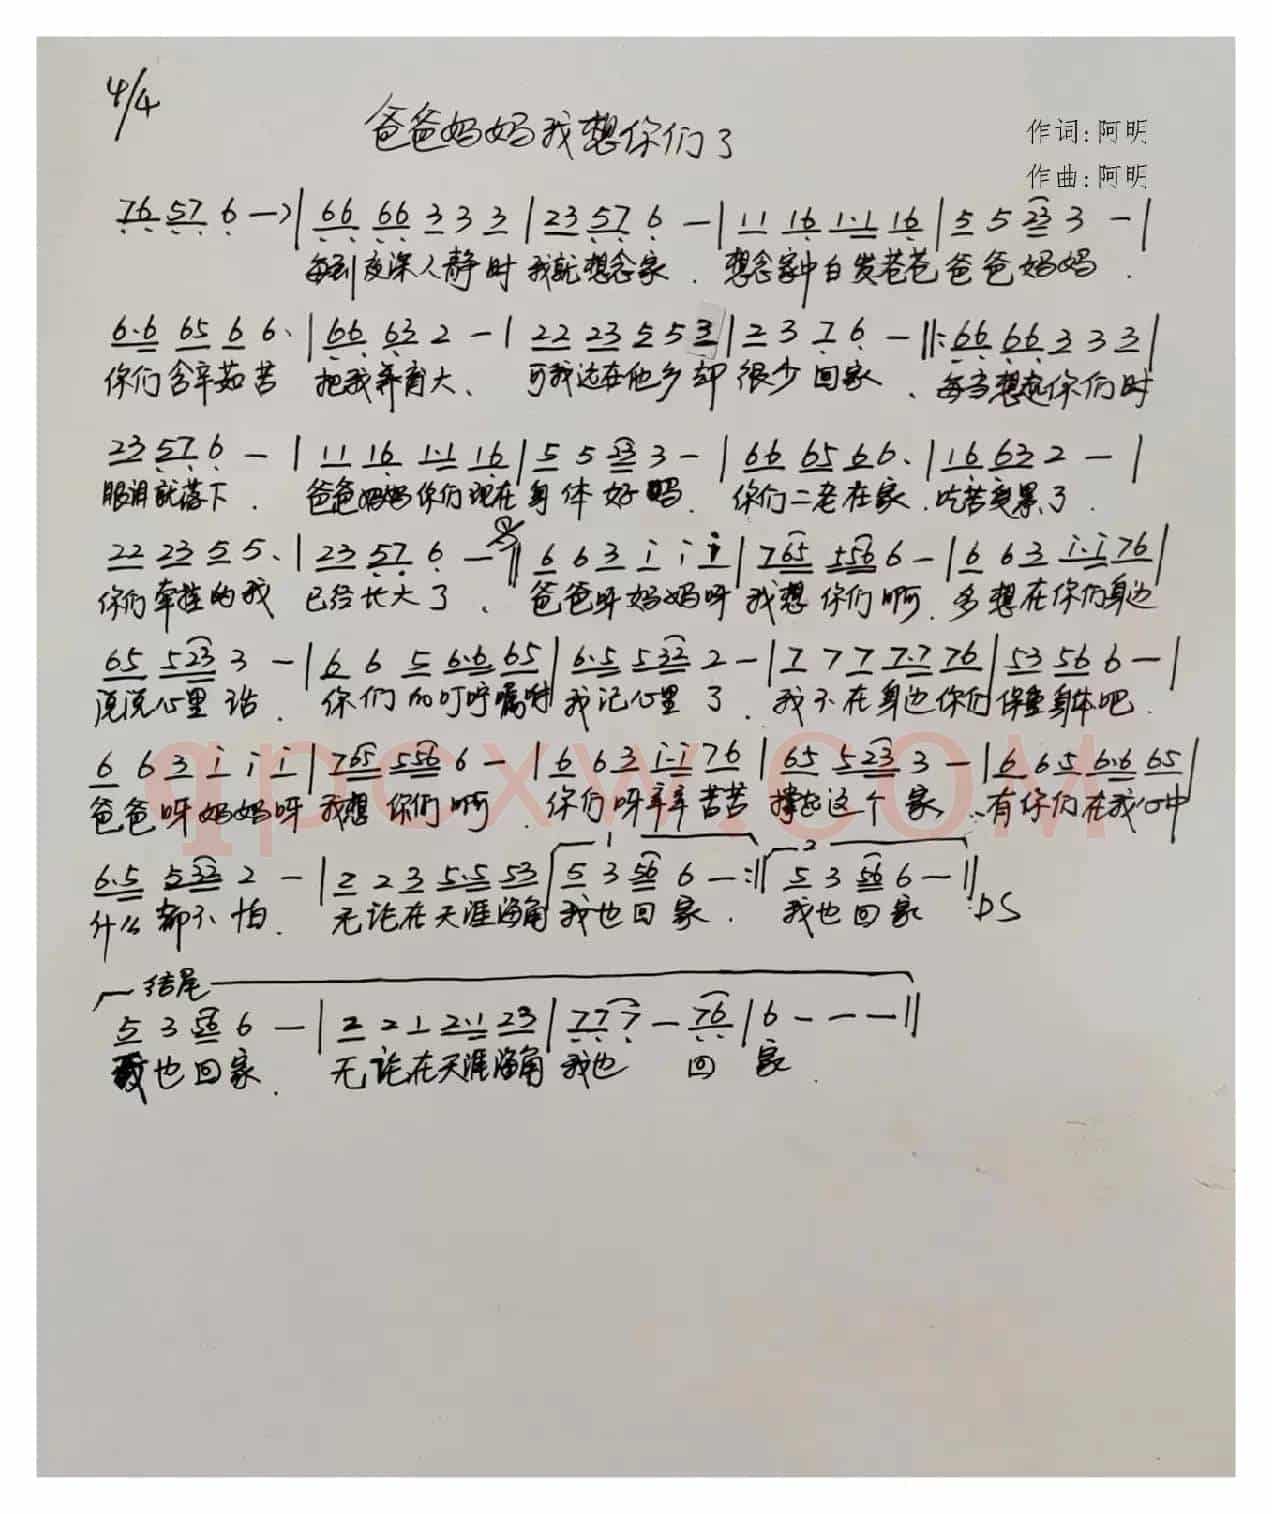 4/4
爸爸妈妈我想你们了
作词:阿明
作曲:阿明
76 57 6 —)| 66 66 3 3 3 | 23 57 6 — | 11 16 1·1 16 | 5 5 23 3 — |
每到夜深人静时 我就想念家 . 想念家中白发苍苍爸爸妈妈 .
6·6 65 6 6· | 66 63 2 — | 22 23 5 5 3 | 2 3 7 6 — ‖: 66 66 3 3 3 |
你们含辛茹苦 把我养育大、 可我远在他乡却 很少回家 、 每当想起你们时
23 57 6 — | 11 16 1·1 16 | 5 5 23 3 — | 66 65 66· | 16 63 2 — |
眼泪就落下 . 爸爸妈妈你们现在身体好吗 . 你们二老在家 . 吃苦受累了 .
22 23 5 5· | 23 57 6 — ‖ 6 6 3 i i i | 765 556 6 — | 6 6 3 i·i 76 |
你们牵挂的我 已经长大了 、 爸爸呀妈妈呀 我想你们啊 . 多想在你们身边
65 523 3 — | 6 6 5 6·6 65 | 6·5 532 2 — | 7 7 7 7·7 76 | 53 56 6 — |
说说心里话 . 你们的叮咛嘱咐 我记心里了 . 我不在身边你们 保重身体吧 .
6 6 3 i i i | 765 556 6 — | 6 6 3 i·i 76 | 65 523 3 — | 6 6 5 6·6 65 |
爸爸呀妈妈呀 我想你们啊 . 你们呀辛辛苦苦 撑起这个家 . 有你们在我心中
1 2
6·5 532 2 — | 2 2 3 5·5 53 | 5 3 56 6 — :‖ 5 3 56 6 — ‖ DS
什么都不怕 . 无论在天涯海角 我也回家 . 我也回家
结尾
5 3 56 6 — | 2 2 1 2·1 23 | 77 7 — 76 | 6 — — — ‖
我也回家 . 无论在天涯海角 我也 回 家 .
qpcxw.COM